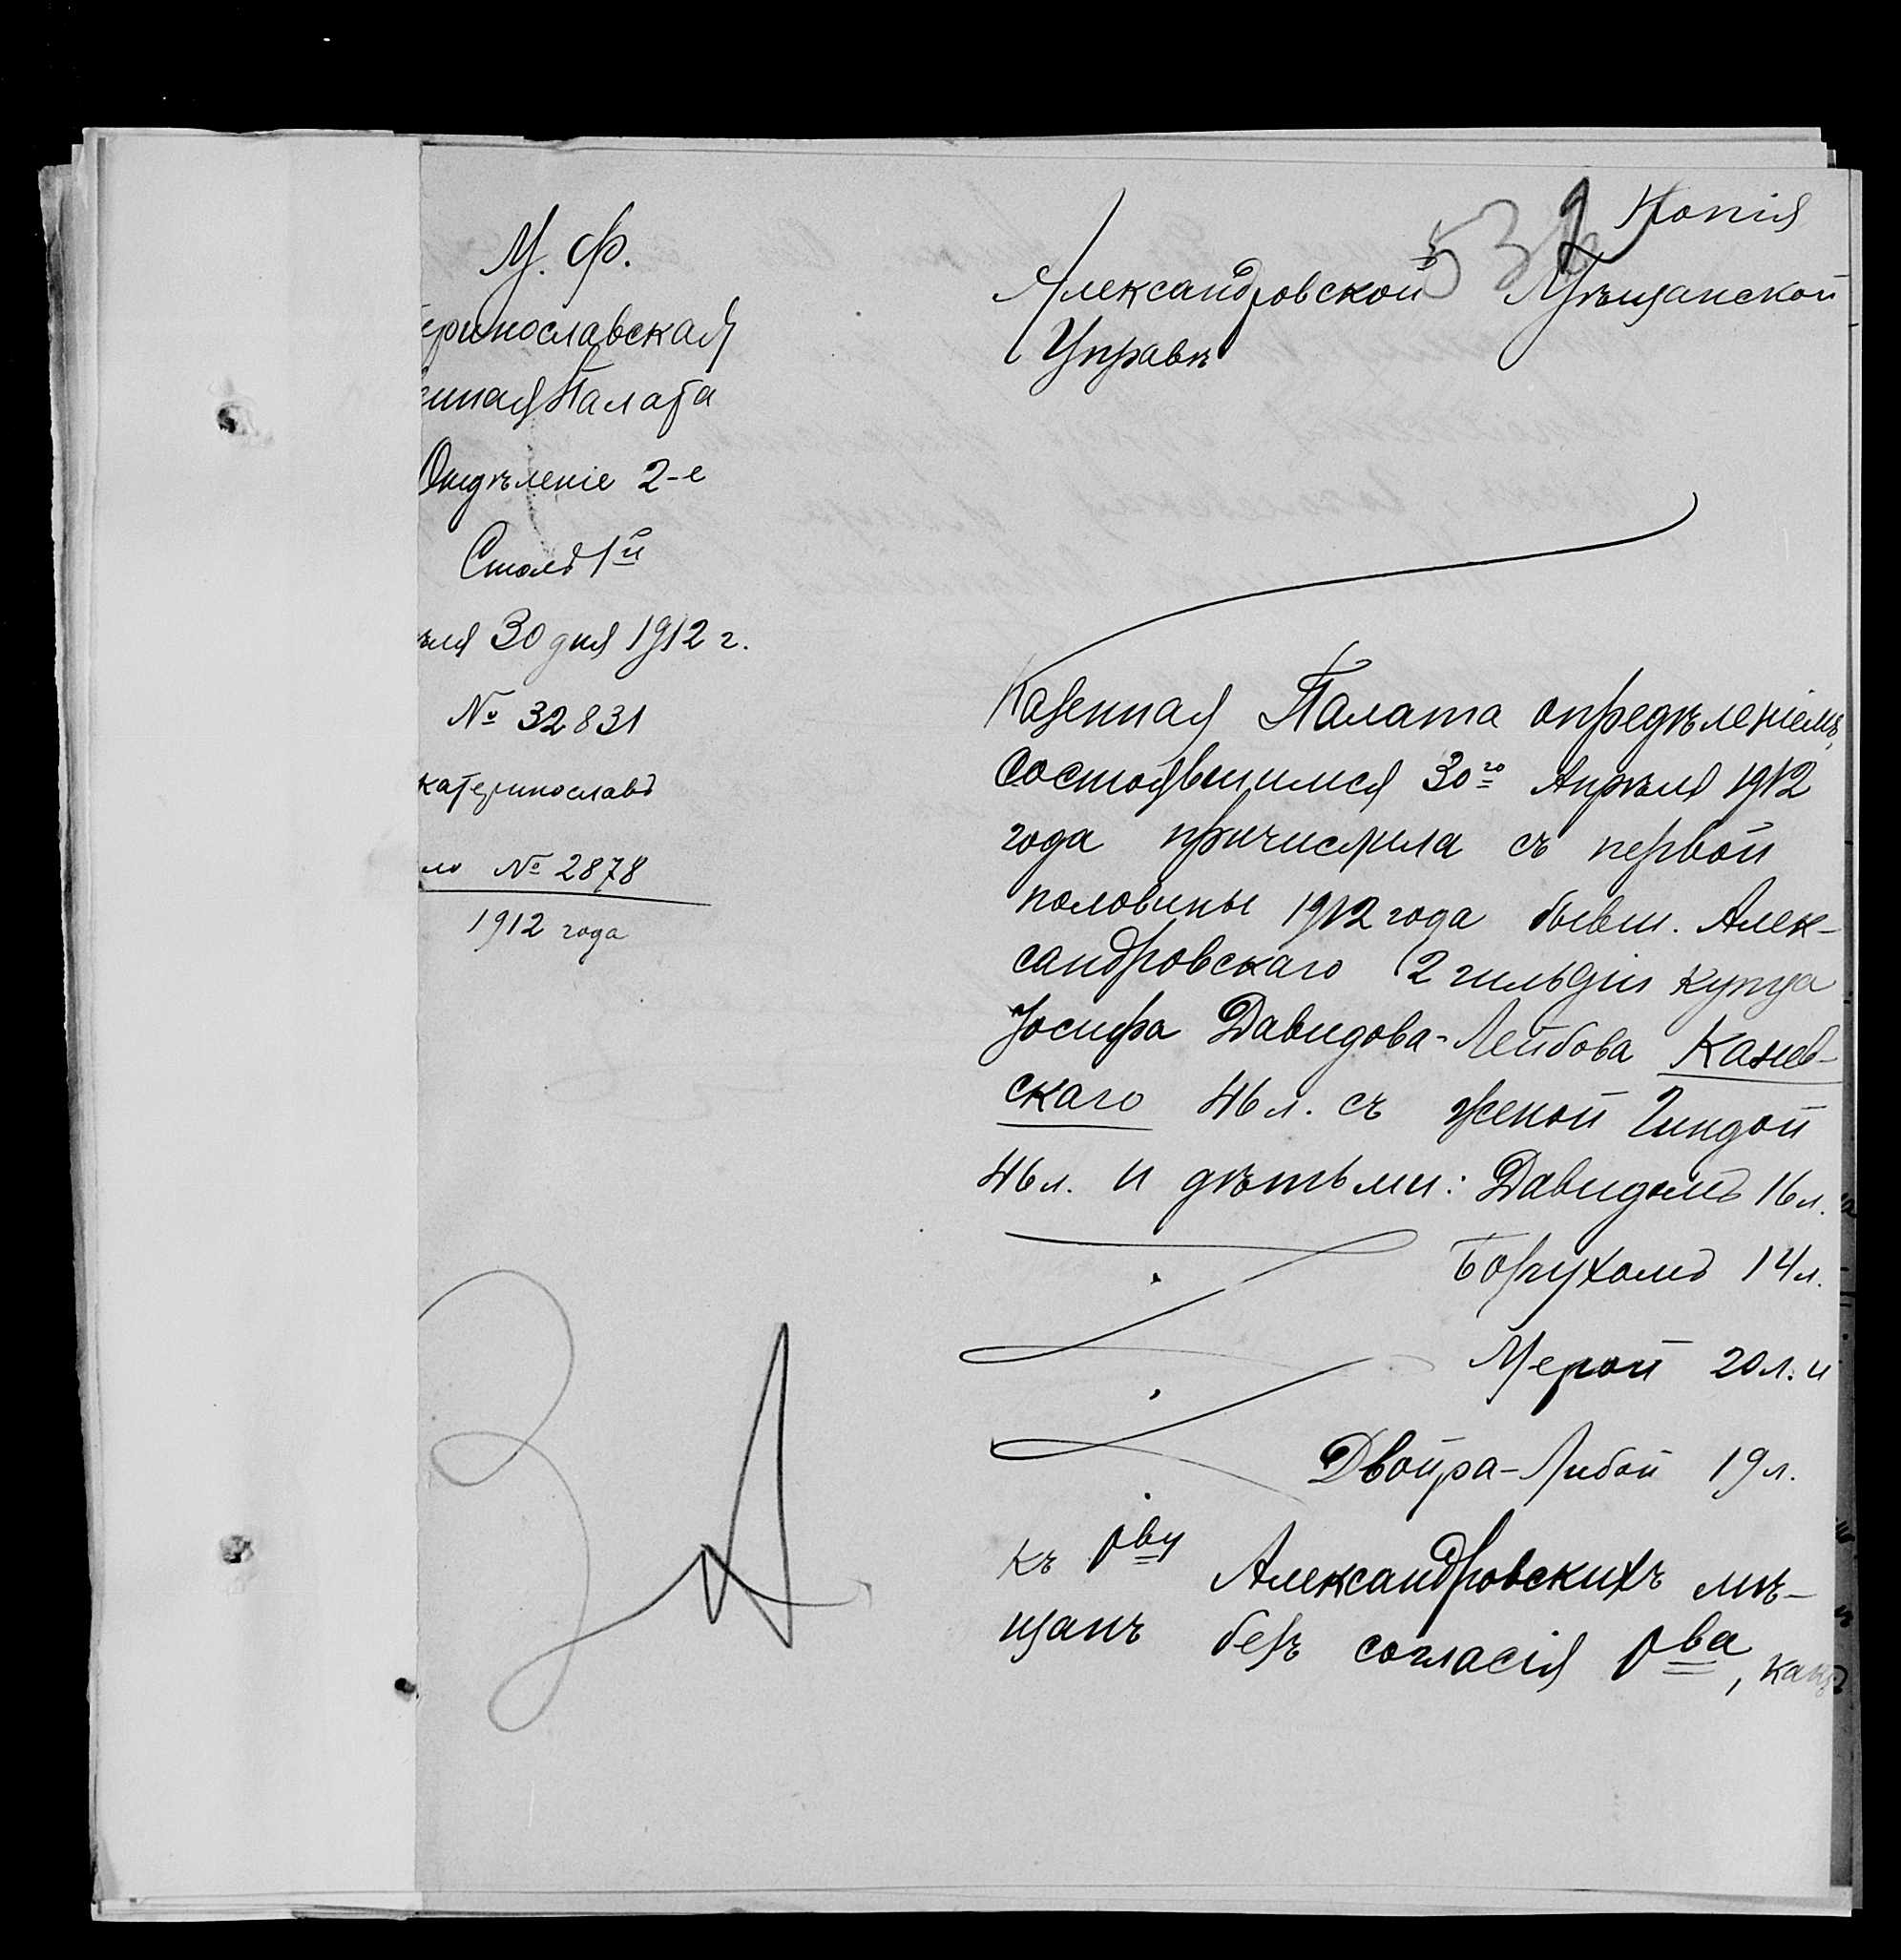 М. Ф.
еринославская
енная Палата
Отдѣленіе 2-е
Столъ 1й
ѣля 30 дня 1912 г.
№ 32831
катеринославъ
ло № 2878
1912 года
Копія
Александровской Мѣщанской
Управѣ
Казенная Палата опредѣленіемъ,
состоявшимся 30го Апрѣля 1912
года причислила съ первой
половины 1912 года бывш. Алек-
сандровскаго 2 гильдіи купца
Іосифа Давидова-Лейбова Канев-
скаго 46 л. съ женой Гиндой
46 л. и дѣтьми: Давидомъ 16 л.
Борухомъ 14 л.
Мерой 20 л. и
Двойра-Либой 19 л.
къ ову Александровскихъ мѣ-
щанъ безъ согласія ова, какъ